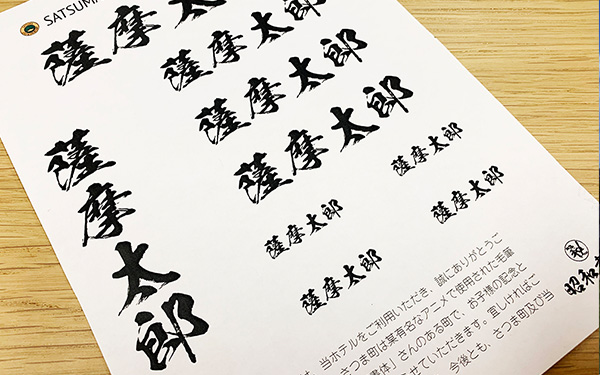 SATSUMA
薩摩太郎
薩摩太郎
薩摩太郎
薩摩太郎
薩摩太郎
薩摩太郎
薩摩太郎
薩摩太郎
薩摩太郎
昭和
当ホテルをご利用いただき、誠にありがとうご
さつま町は某有名なアニメで使用された毛筆
書体」さんのある町で、お子様の記念と
せていただきます。宜しければご
今後とも、さつま町及び当